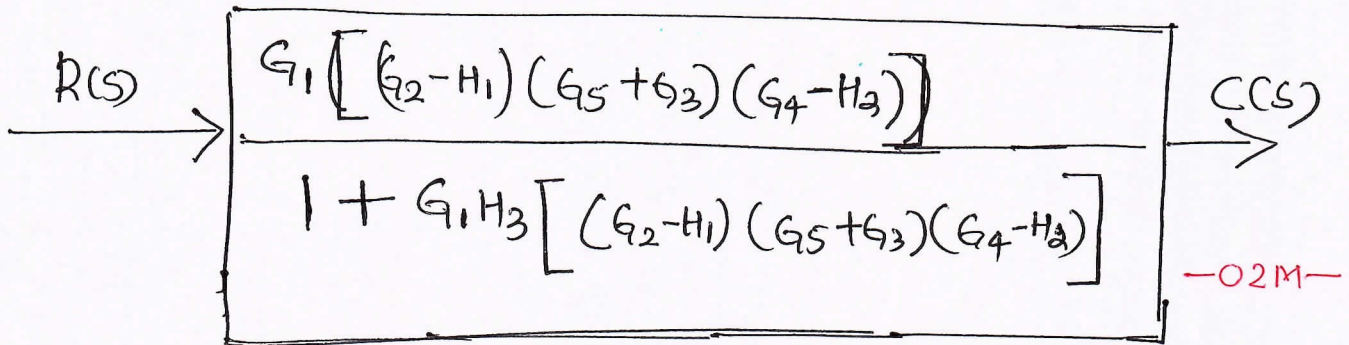 R(S)
G₁[(G₂-H₁)(G₅+G₃)(G₄-H₂)]
1 + G₁H₃[(G₂-H₁)(G₅+G₃)(G₄-H₂)]
C(S)
-02M-